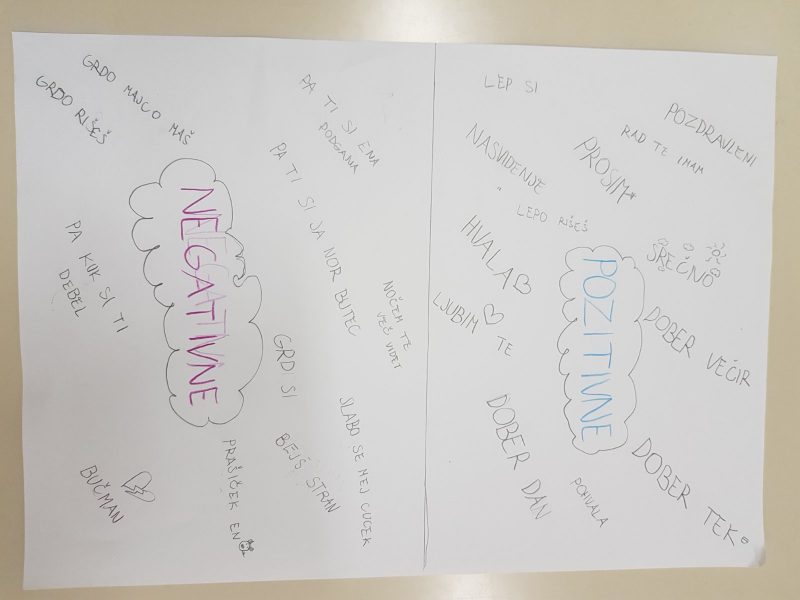 GRDO MAJCO MAŠ
GRDO RIŠEŠ
PA TI SI ENA
PODGANA
PA TI SI JA NOR BUTEC
NEGATIVNE
PA KUK SI TI
DEBEL
NOČEM TE
VEČ VIDET
GRD SI
SLABO SE MEJ CUCEK
BEJŠ STRAN
PRAŠIČEK EN
BUČMAN
LEP SI
POZDRAVLENI
RAD TE IMAM
PROSIM
NASVIDENJE
LEPO RIŠEŠ
HVALA
SREČNO
POZITIVNE
LJUBIM TE
DOBER VEČIR
DOBER DAN
POHVALA
DOBER TEK